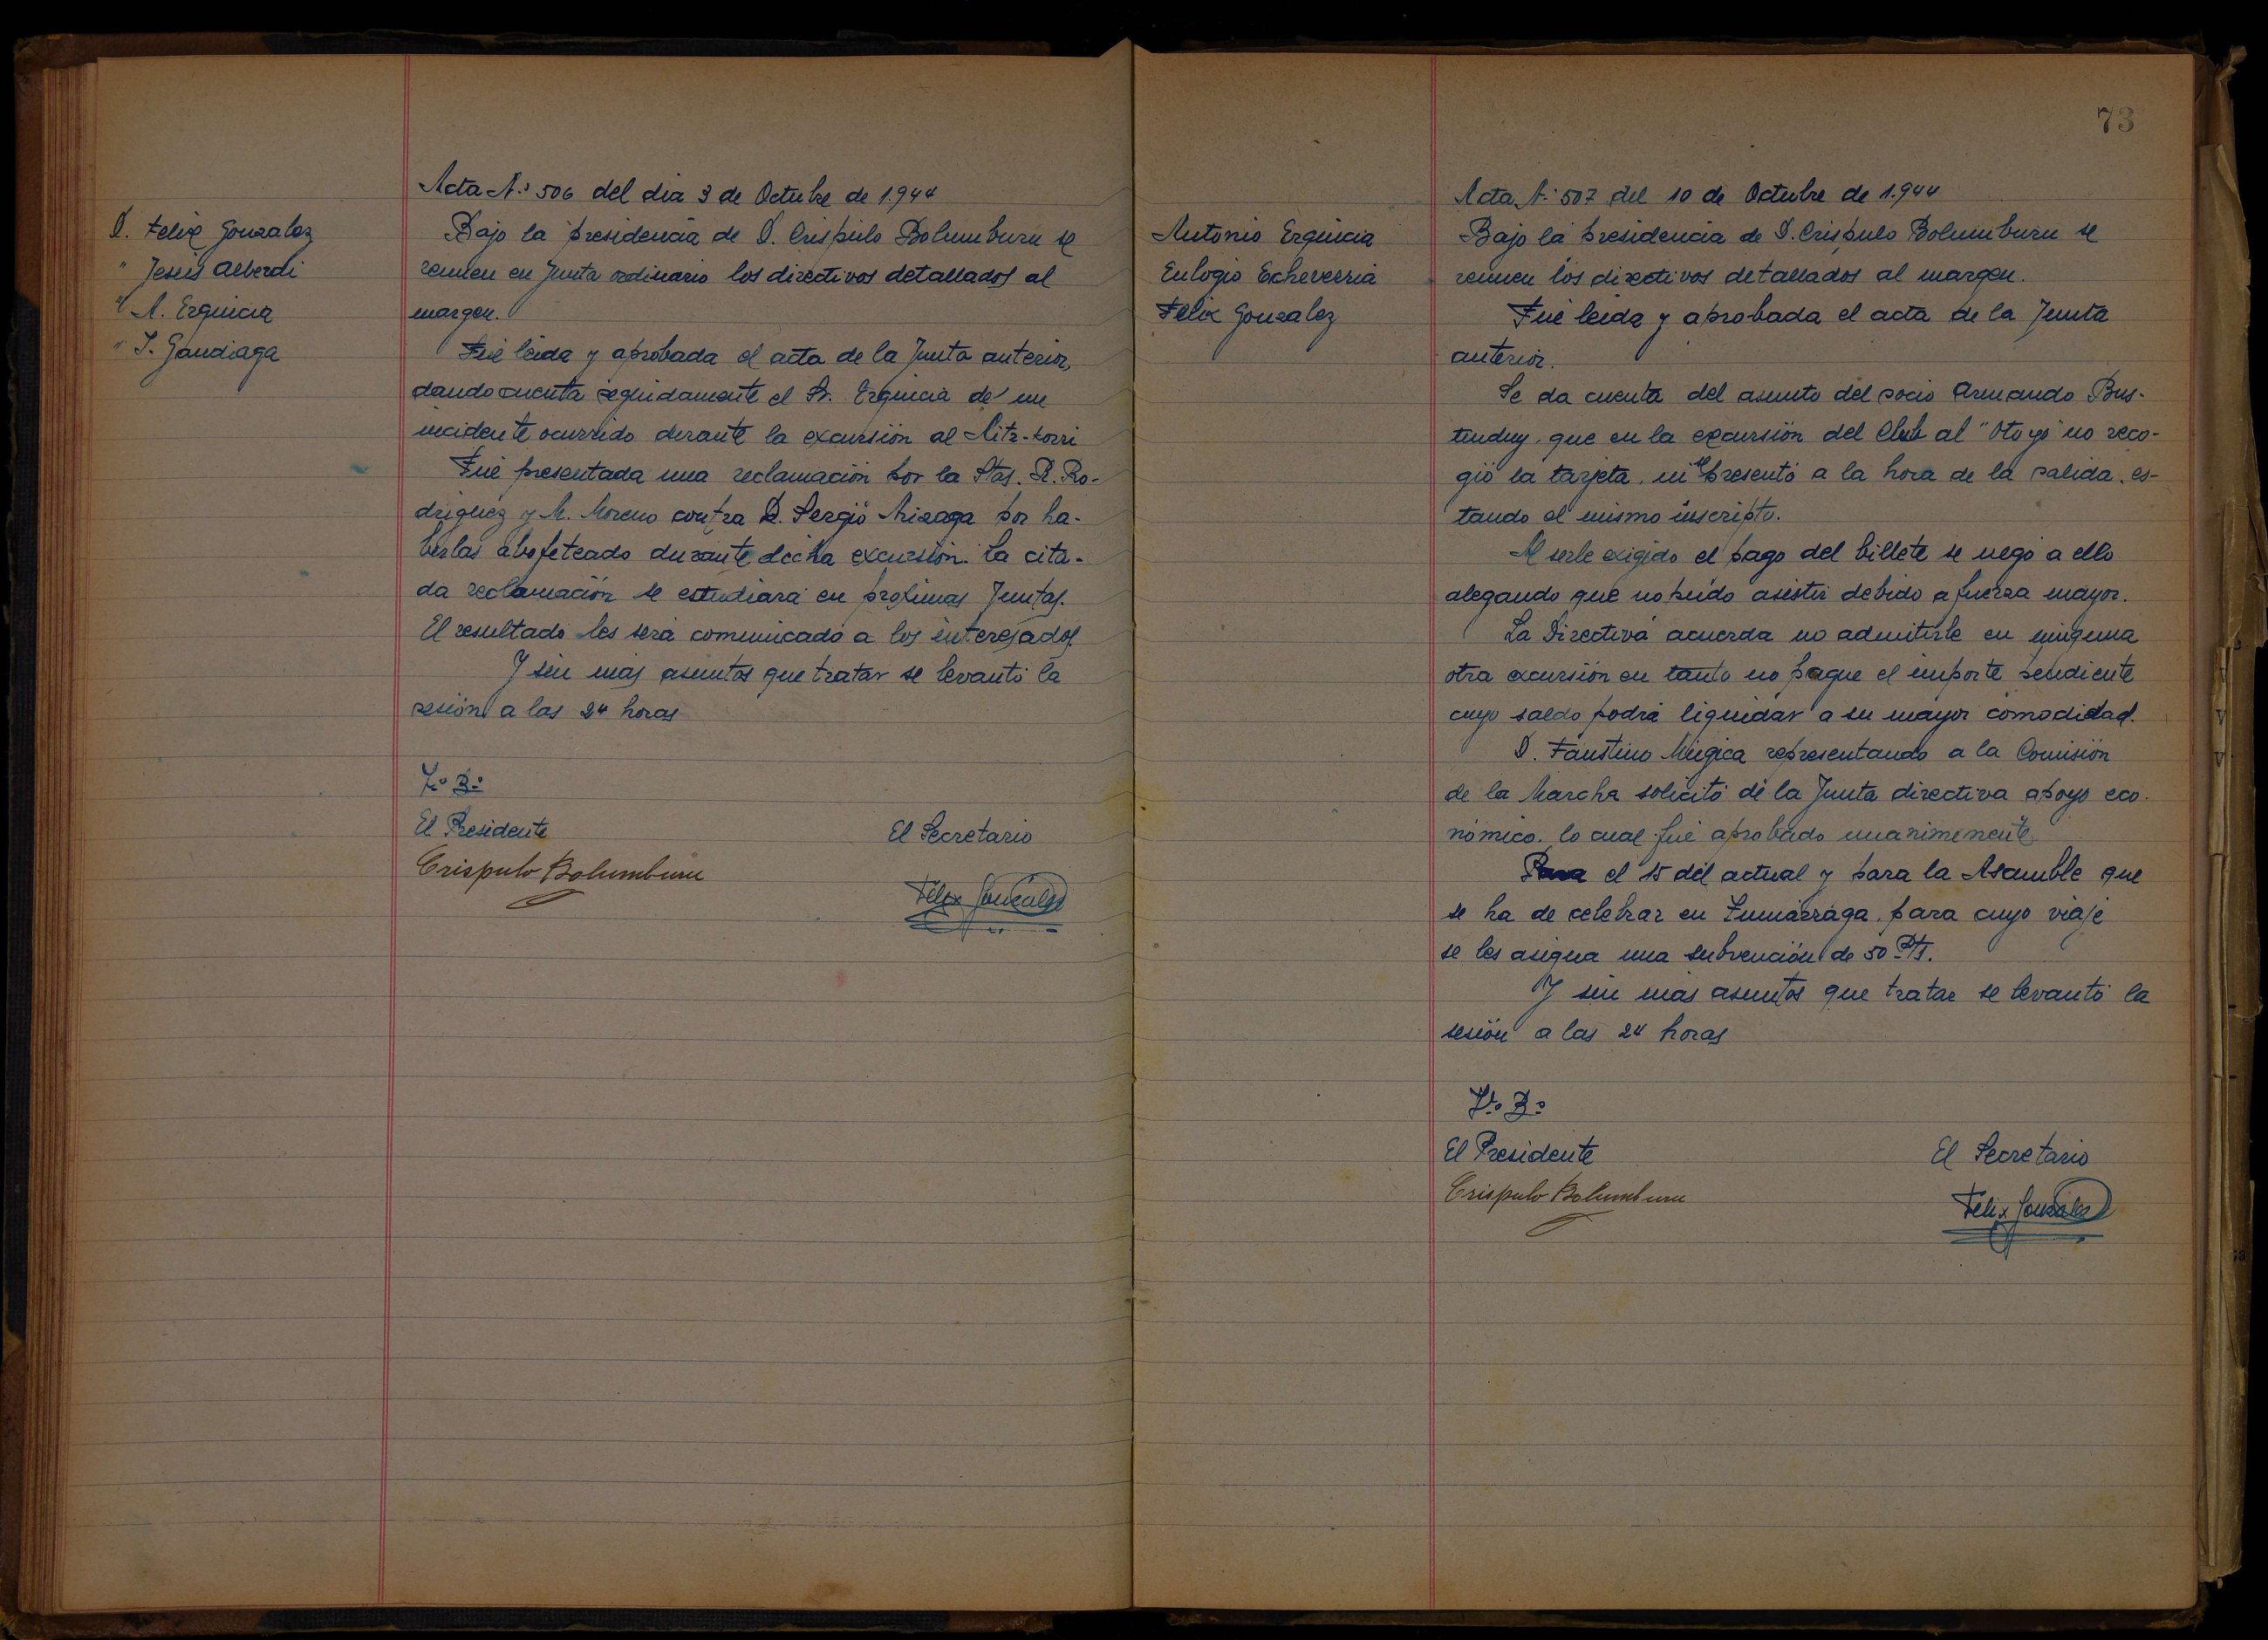 Acta N.º 506 del dia 3 de Octubre de 1.944
D. Felix Gonzalez
" Jesús Alberdi
" A. Erquicia
" J. Gandiaga
Bajo la presidencia de D. Crispulo Bolumburu se
reunen en Junta ordinario los directivos detallados al
margen.
Fué leida y aprobada el acta de la Junta anterior,
dando cuenta seguidamente el Sr. Erquicia de un
incidente ocurrido durante la excursión al Aitz-korri
Fué presentada una reclamación por la Stas. R. Ro-
driguez y M. Moreno contra D. Sergio Arizaga por ha-
berlas abofeteado durante dicha excursión. La cita-
da reclamación se estudiará en proximas Juntas.
El resultado les será comunicado a los interesados.
Y sin mas asuntos que tratar se levantó la
sesión a las 24 horas
Vº Bº
El Presidente
El Secretario
Crispulo Bolumburu
Felix Gonzalez
73
Acta N.º 507 del 10 de Octubre de 1.944
Antonio Erquicia
Eulogio Echeverria
Felix Gonzalez
Bajo la presidencia de D. Crispulo Bolumburu se
reunen los directivos detallados al margen.
Fué leida y aprobada el acta de la Junta
anterior.
Se da cuenta del asunto del socio Armando Bus-
tinduy, que en la excursión del Club al "Otoyo" no reco-
gió la tarjeta, ni se presentó a la hora de la salida, es-
tando el mismo inscripto.
Al serle exigido el pago del billete se negó a ello
alegando que no pudo asistir debido a fuerza mayor.
La Directiva acuerda no admitirle en ninguna
otra excursión en tanto no pague el importe pendiente
cuyo saldo podrá liquidar a su mayor comodidad.
D. Faustino Múgica representando a la Comisión
de la Marcha solicitó de la Junta directiva apoyo eco-
nómico, lo cual fué aprobado unanimemente.
Para el 15 del actual y para la Asamble que
se ha de celebrar en Zumárraga, para cuyo viaje
se les asigna una subvención de 50 Pts.
Y sin más asuntos que tratar se levantó la
sesión a las 24 horas
Vº Bº
El Presidente
El Secretario
Crispulo Bolumburu
Felix Gonzalez